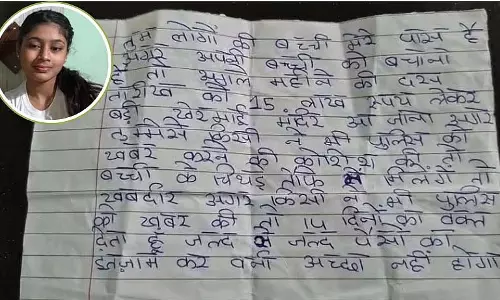 तुम लोगों की बच्ची मेरे पास है
अगर अपनी बच्ची को बचाना
है तो अगले महीने की दस
तारीख को 15 लाख रूपये लेकर
बड़ी खेरमाई मंदिर आ जाना अगर
तुममेसे किसी ने भी पुलिस को
खबर करने की कोशिश की तो
बच्ची के चिथड़े मिलेंगे तो
खबरदार अगर किसी ने भी पुलिस
को खबर की तो 14 दिनों का वक्त
देता हूं जल्द से जल्द पैसों का
इंतजाम कर वर्ना अच्छा नहीं होगा